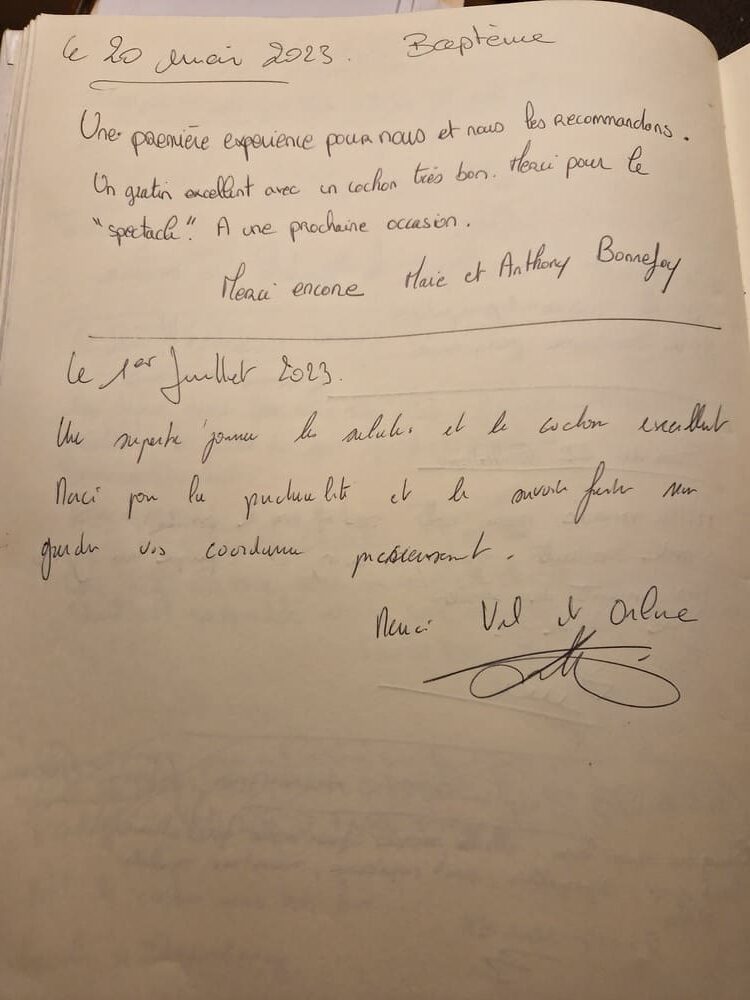 Le 20 mai 2023. Baptême
Une première expérience pour nous et nous les recommandons.
Un gratin excellent avec un cochon très bon. Merci pour le
"spectacle". A une prochaine occasion.
Merci encore Marie et Anthony Bonnefoy
Le 1er Juillet 2023.
Une superbe journée les salades et le cochon excellent
Merci pour la ponctualité et le savoir faire
garder vos coordonnées précieusement.
Merci Val et